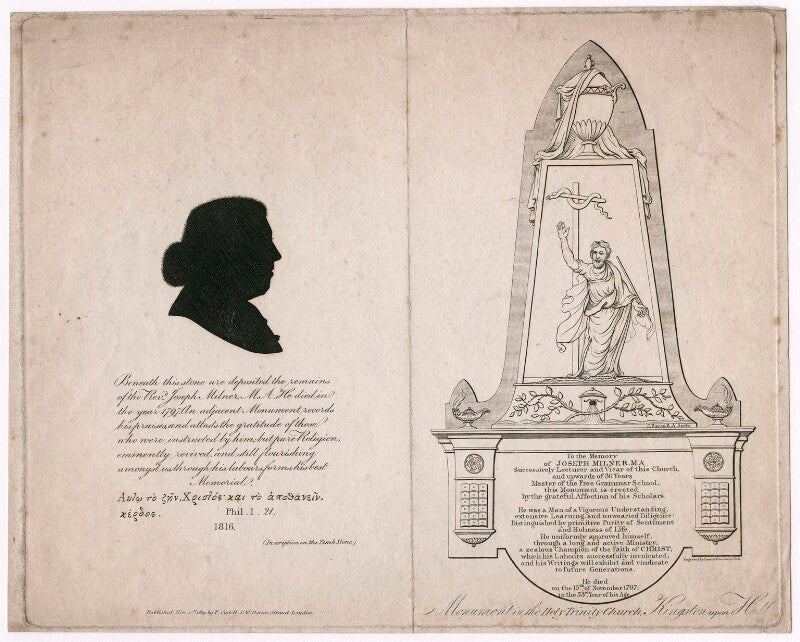 Beneath this stone are deposited the remains
of the Revd. Joseph Milner, M.A. He died in
the year 1797. An adjacent Monument records
his praises, and attests the gratitude of those
who were instructed by him; but pure Religion,
eminently revived, and still flourishing
amongst us through his labours, forms his best
Memorial.
Αυτω το ζῆν, Χριστός· και τὸ ἀποθανεῖν,
κέρδος. Phil. 1. 21.
1816.
(Inscription on the Tomb Stone)
To the Memory
of JOSEPH MILNER, M.A.
Successively Lecturer and Vicar of this Church,
and upwards of 30 Years
Master of the Free Grammar School,
this Monument is erected
by the grateful Affection of his Scholars.
He was a Man of a Vigorous Understanding,
extensive Learning, and unwearied Diligence:
Distinguished by primitive Purity of Sentiment
and Holiness of Life.
He uniformly approved himself,
through a long and active Ministry,
a zealous Champion of the Faith of CHRIST;
which his Labours successfully inculcated,
and his Writings will exhibit and vindicate
to future Generations.
He died
on the 15th of November 1797,
in the 53d Year of his Age.
Published Nov. 1819 by T. Cadell & W. Davies Strand, London.
Monument in the Holy Trinity Church, Kingston upon Hull